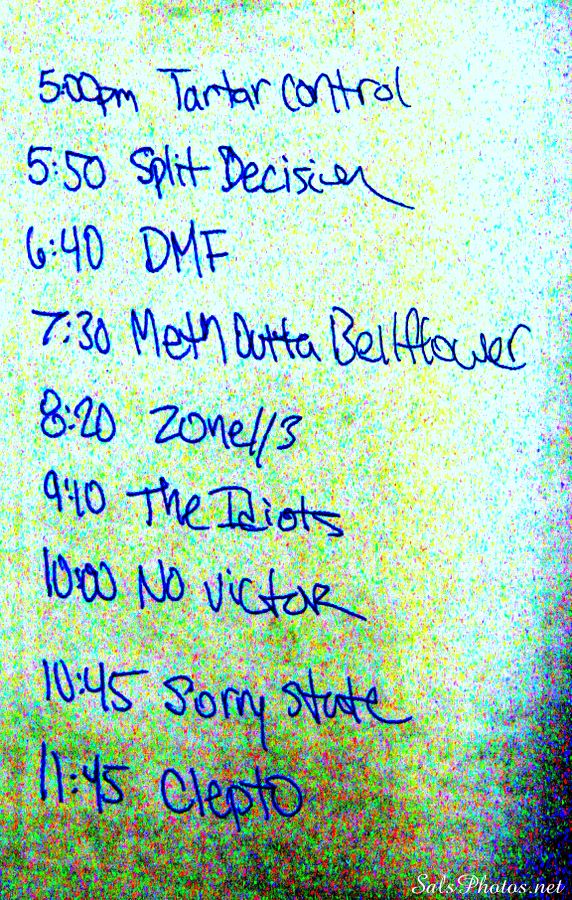 5:00pm Tartar control
5:50 Split Decision
6:40 DMF
7:30 Meth Outta Bellflower
8:20 Zone//3
9:10 The Idiots
10:00 No Victor
10:45 Sorry State
11:45 Clepto
SalsPhotos.net